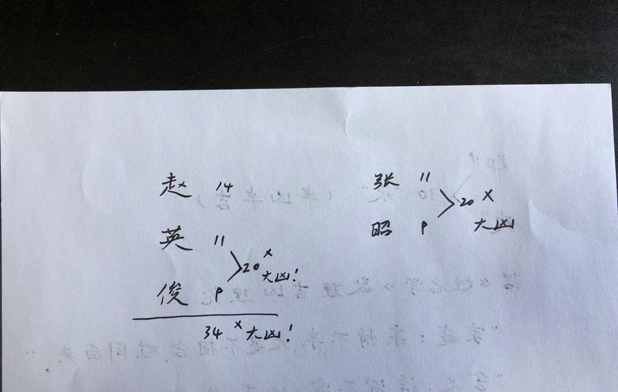 赵 14
英 11
>20 × 大凶!
俊 9
34 × 大凶!
张 11
>20 × 大凶
昭 9